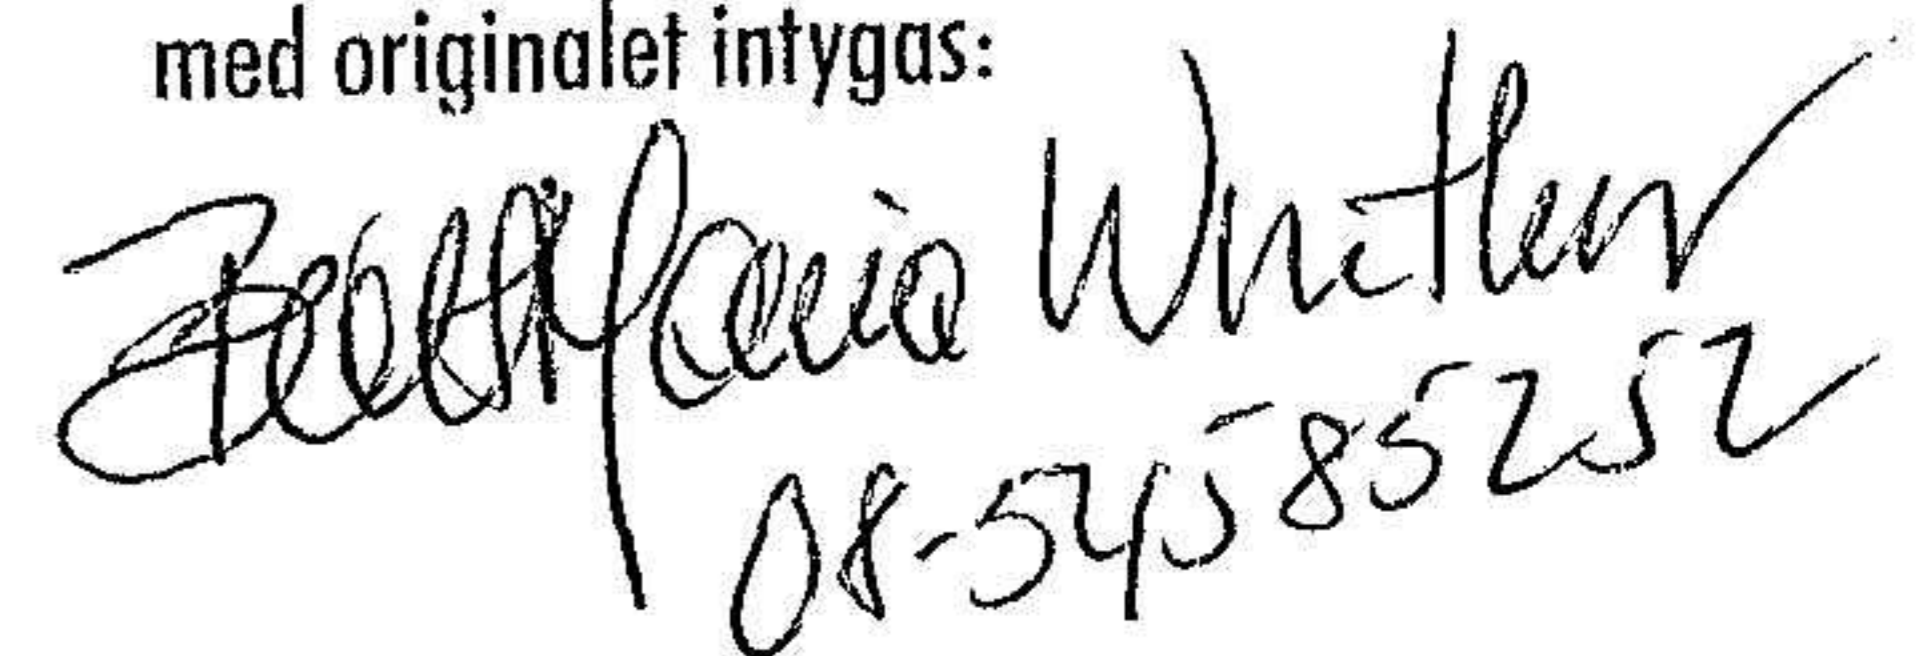 med originalet intygas:
Maria
08-54585252